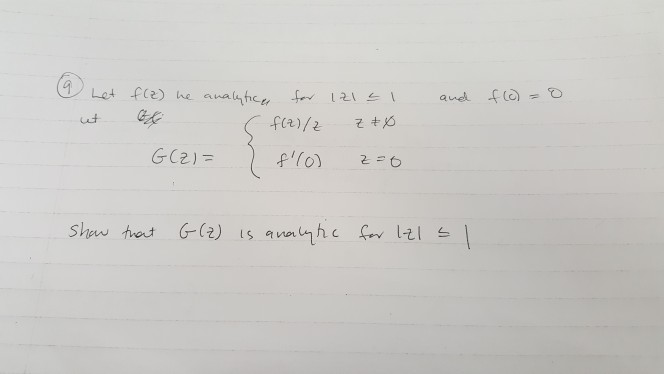 9 Let f(z) be analytic for |z| ≤ 1 and f(0) = 0
let
f(z)/z z ≠ 0
G(z) = {
f'(0) z = 0
Show that G(z) is analytic for |z| ≤ 1